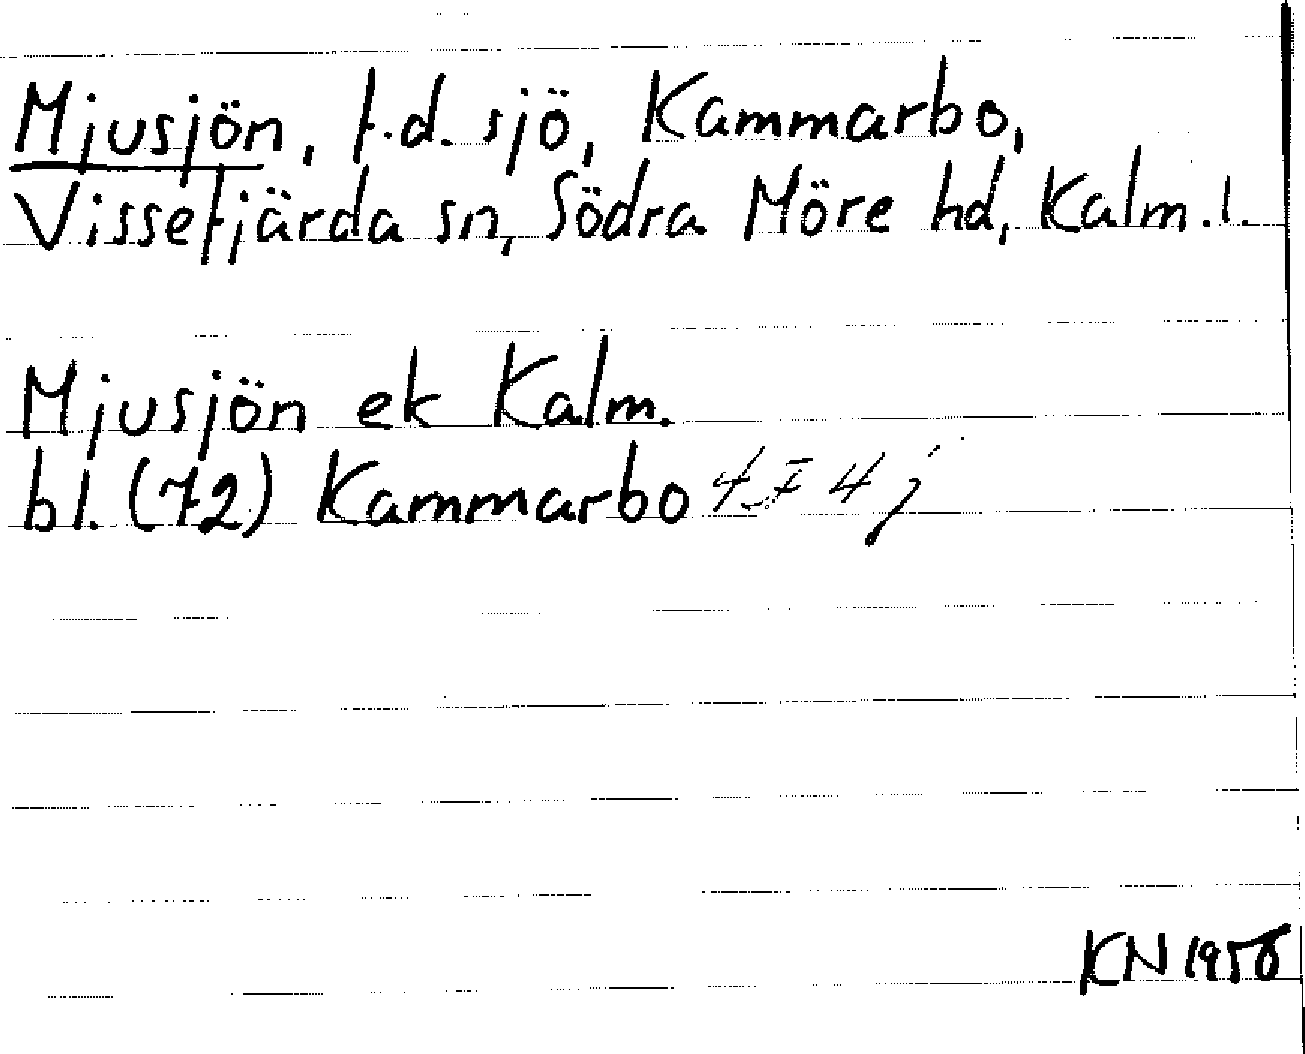 Mjusjön, f.d. sjö, Kammarbo,
Vissefjärda sn, Södra Möre hd, Kalm. l.
Mjusjön ek Kalm.
bl. (72) Kammarbo 4F 4j
KN 1956